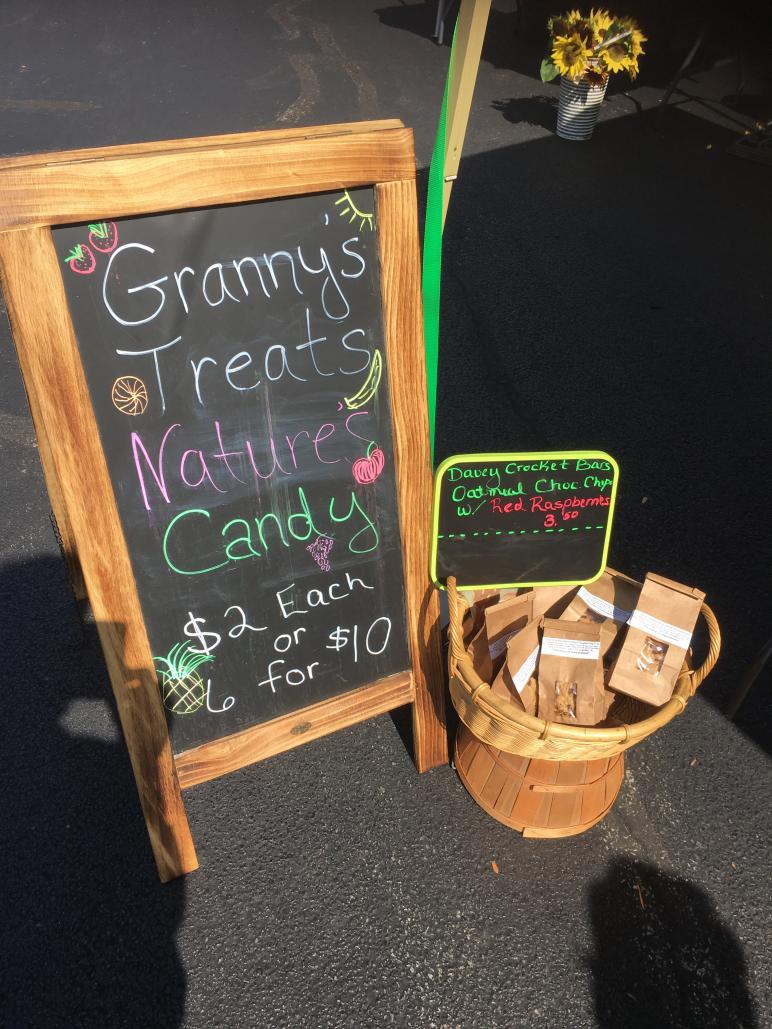 Granny's
Treats
Nature's
Candy
$2 Each
or
6 for $10
Davey Crocket Bars
Oatmeal Choc. Chips
w/ Red Raspberries
3.50